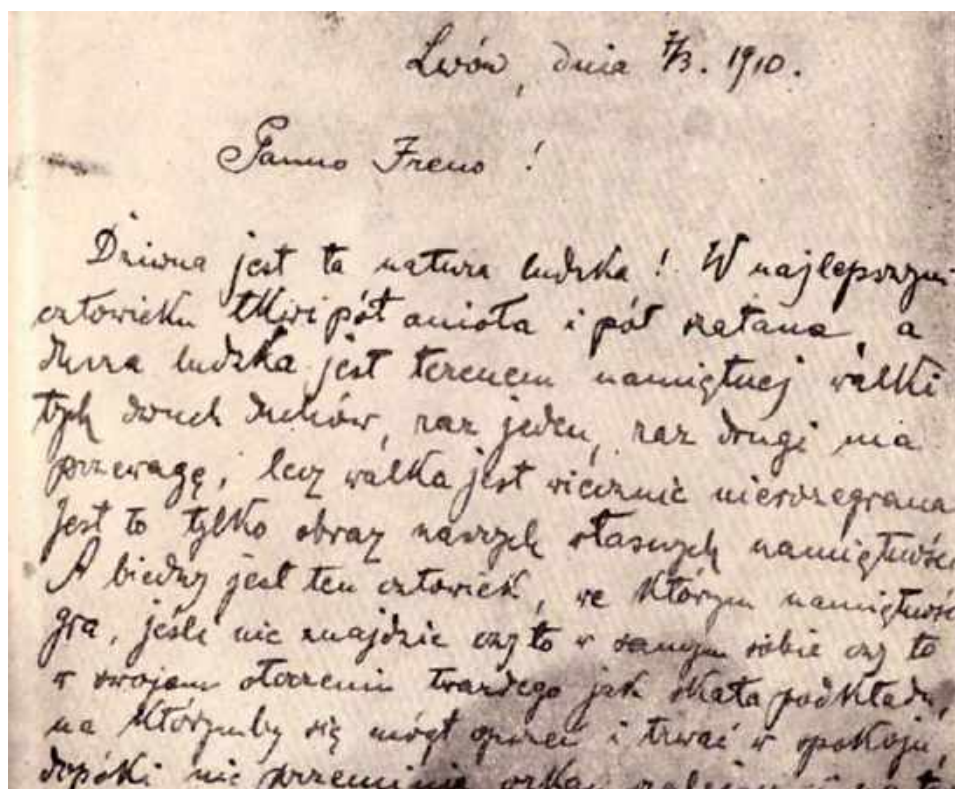 Lwów, dnia 7/3. 1910.
Panno Ireno!
Dziwna jest ta natura ludzka! W najlepszym
człowieku tkwi pół anioła i pół szatana, a
dusza ludzka jest terenem namiętnej walki
tych dwuch duchów, raz jeden, raz drugi ma
przewagę, lecz walka jest wiecznie nierozegrana
Jest to tylko obraz naszych własnych namiętności
A biedny jest ten człowiek, we którym namiętność
gra, jeśli nie znajdzie czy to w samym sobie czy to
w swojem otoczeniu twardego jak skała podkładu,
na którymby się mógł oprzeć i trwać w spokoju,
dopóki nie przeminie